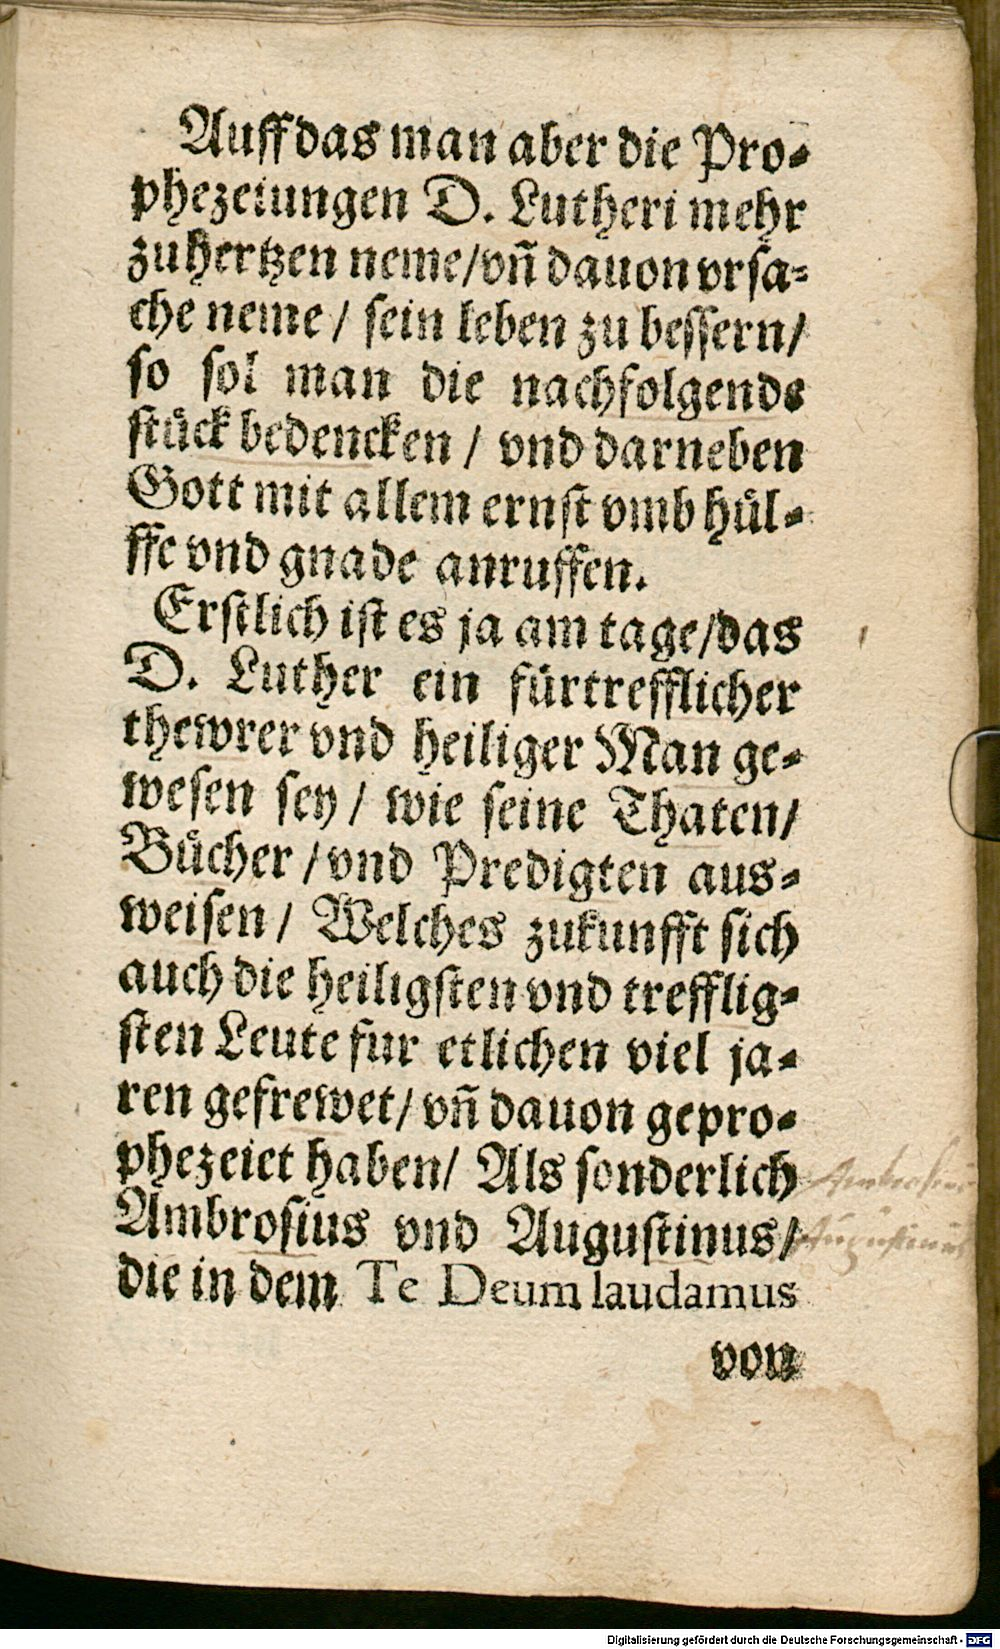 Auff das man aber die Pro-
phezeiungen D. Lutheri mehr
zu hertzen neme/vn̄ dauon vrsa-
che neme / sein leben zu bessern/
so sol man die nachfolgende
stuͤck bedencken / vnd darneben
Gott mit allem ernst vmb huͤl-
ffe vnd gnade anruffen.
Erstlich ist es ja am tage/das
D. Luther ein fürtrefflicher
thewrer vnd heiliger Man ge-
wesen sey / wie seine Thaten/
Buͤcher / vnd Predigten aus-
weisen / Welches zukunfft sich
auch die heiligsten vnd trefflig-
sten Leute fur etlichen viel ja-
ren gefrewet/ vn̄ dauon gepro-
phezeiet haben/ Als sonderlich
Ambrosius vnd Augustinus/
die in dem Te Deum laudamus
von
Ambrosius
Augustinus
Digitalisierung gefördert durch die Deutsche Forschungsgemeinschaft - DFG